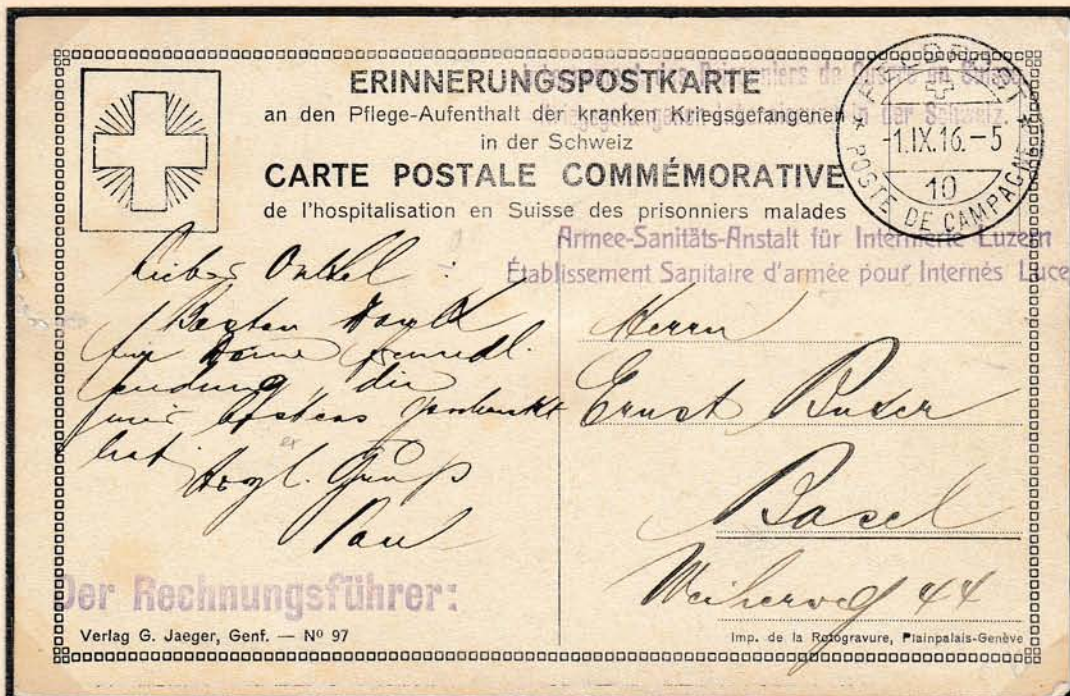 ERINNERUNGSPOSTKARTE
an den Pflege-Aufenthalt der kranken Kriegsgefangenen
in der Schweiz
CARTE POSTALE COMMÉMORATIVE
de l'hospitalisation en Suisse des prisonniers malades
des Prisonniers de Guerre en
Kriegsgefangenen-Internierung in der Schweiz.
FELDPOST
-1.IX.16.-5
10
POSTE DE CAMPAGNE
Armee-Sanitäts-Anstalt für Internierte Luzern
Établissement Sanitaire d'armée pour Internés Luce
Lieber Onkel:
Besten Dank
für Deine freundl.
Sendung, die
mir bestens geschmeckt
hat.
Herzl. Gruß
Paul
Herrn
Ernst Buser
Basel
Weiherweg 44
Der Rechnungsführer:
Verlag G. Jaeger, Genf. — Nº 97
Imp. de la Rotogravure, Plainpalais-Genève